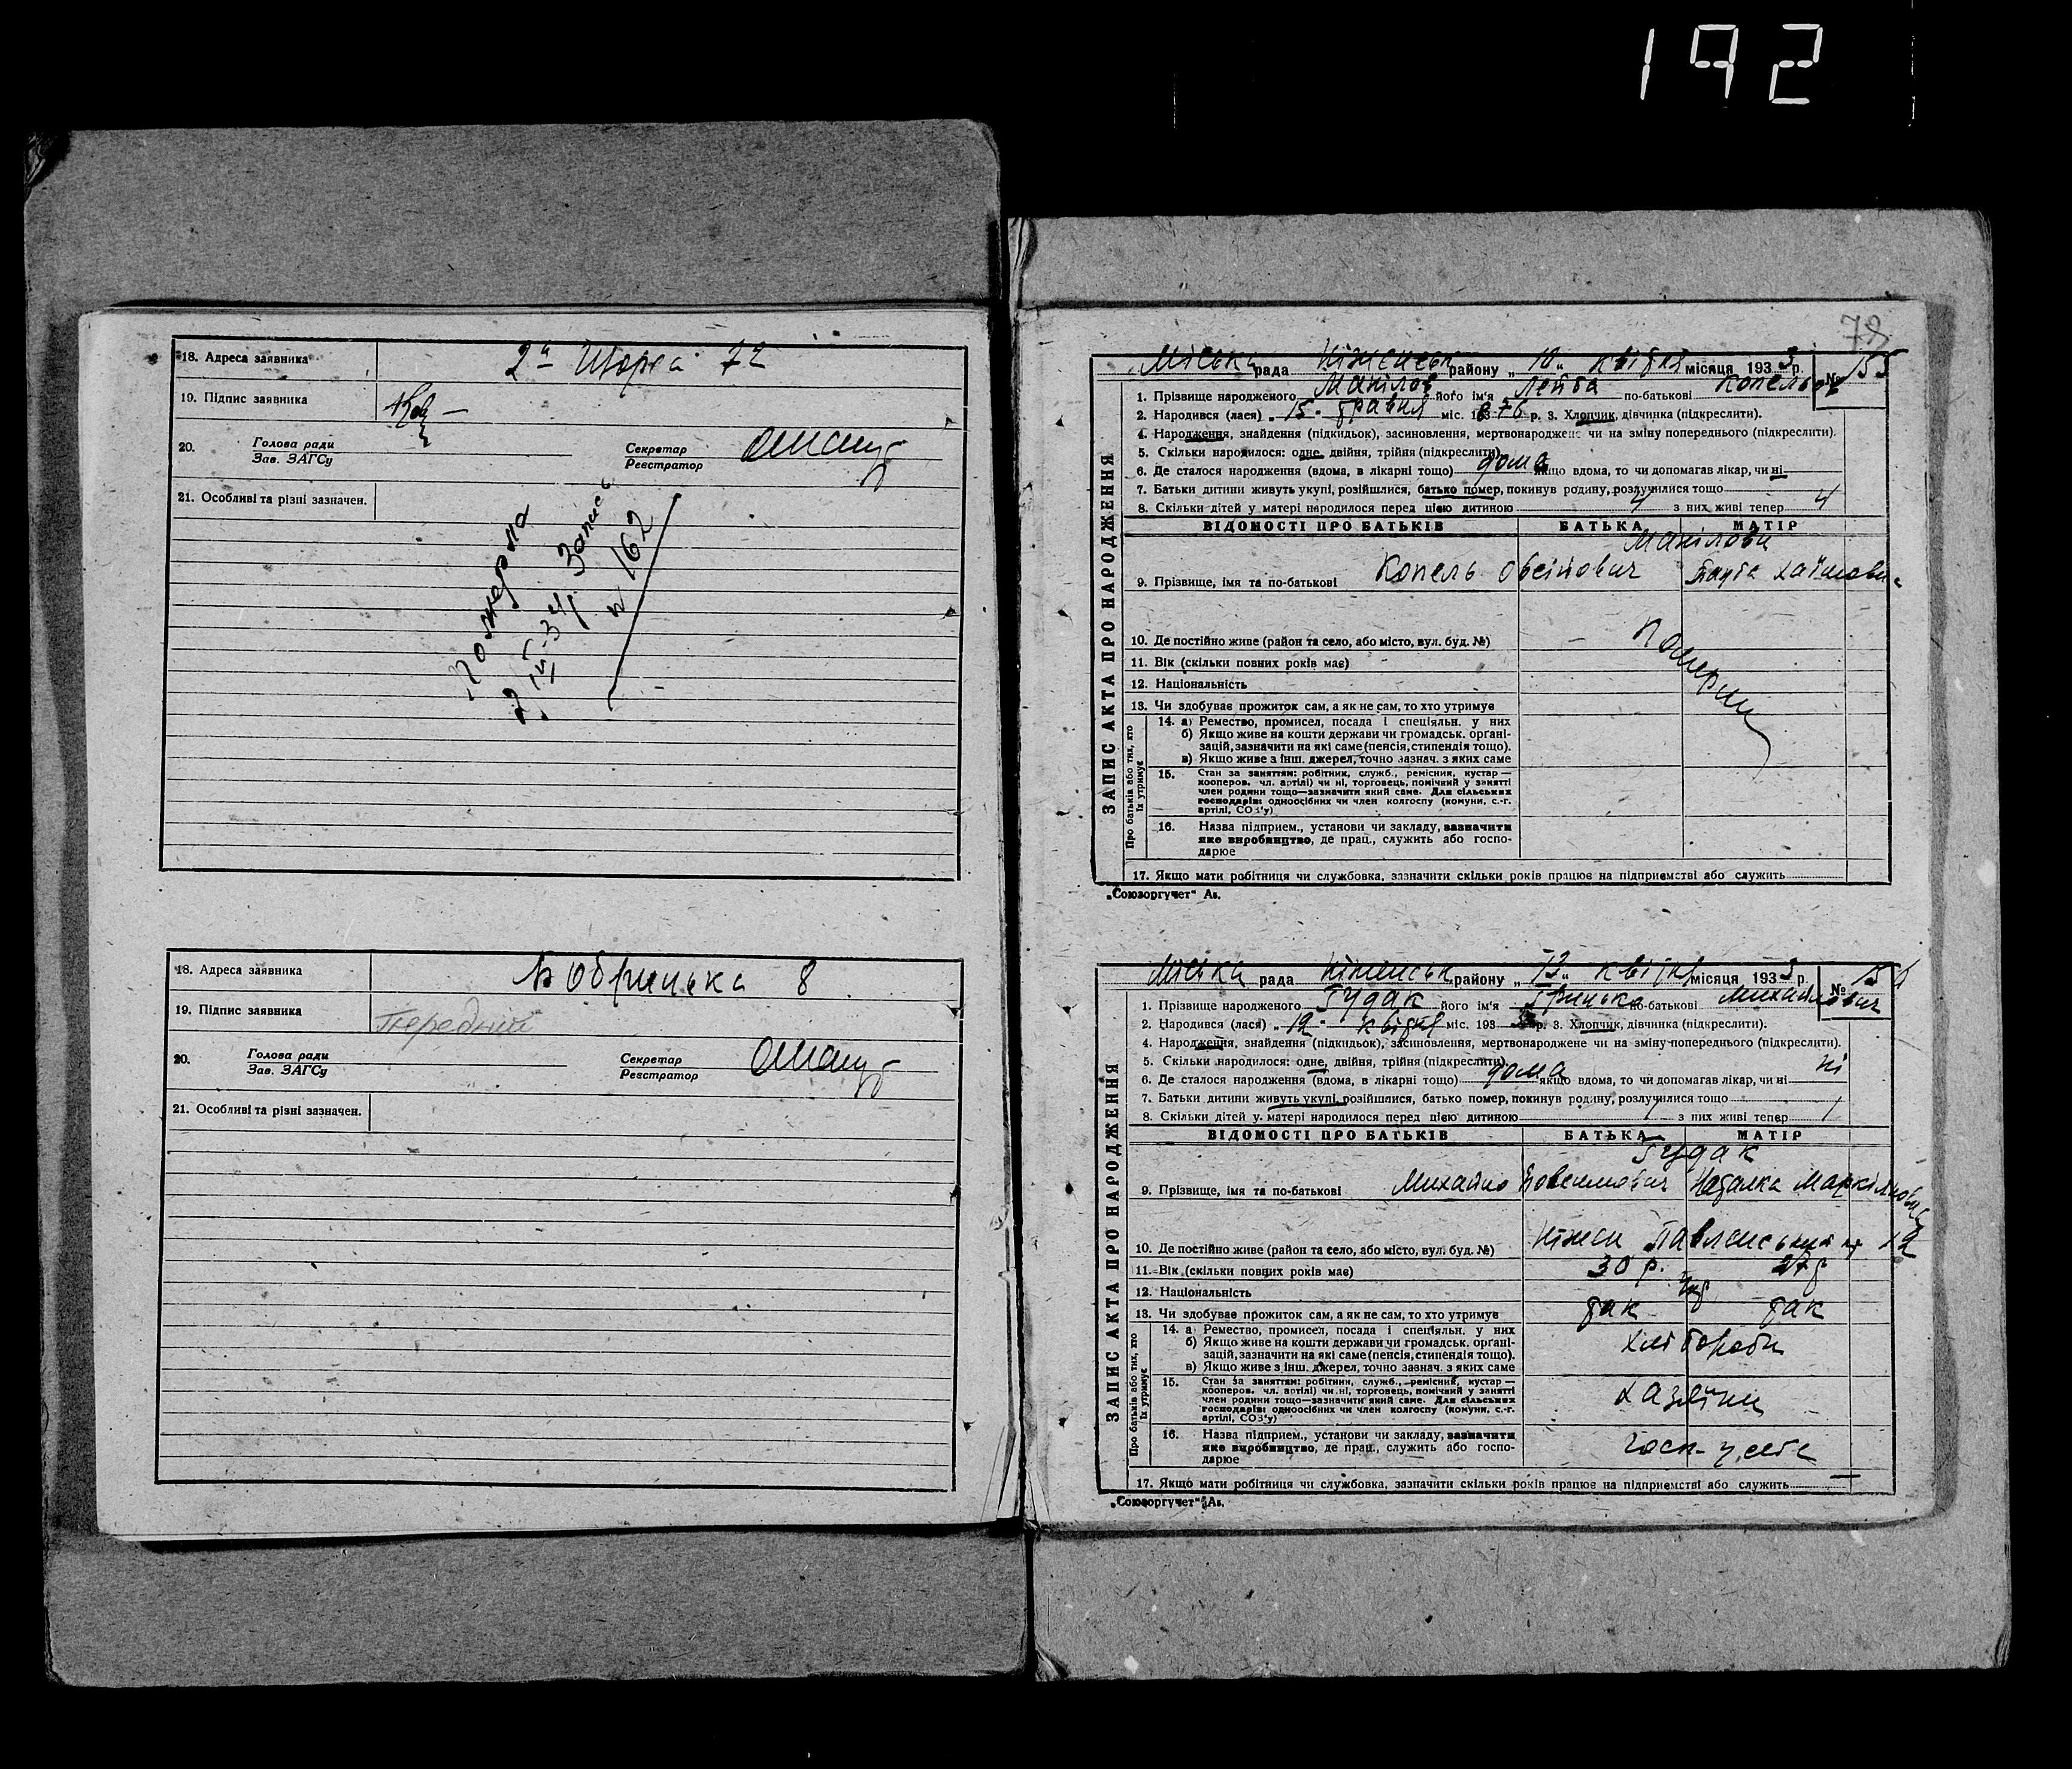 192
18. Адреса заявника 2а Щорса 72
19. Підпис заявника
20. Голова ради
Зав. ЗАГСу
Секретар
Реєстратор
21. Особливі та різні зазначен.
Померла
Запись
№ 162
18. Адреса заявника Бобрицька 8
19. Підпис заявника
20. Голова ради
Зав. ЗАГСу
Секретар
Реєстратор
21. Особливі та різні зазначен.
Міська рада Ніженськ району „ 10 „ квітня місяця 193 3 р. № 155
1. Прізвище народженого Манілов його ім'я Лейба по-батькові Копельов
2. Народився (лася) „ 15 - травня міс. р. 3. Хлопчик, дівчинка (підкреслити).
4. Народження, знайдення (підкидьок), засиновлення, мертвонароджене чи на зміну попереднього (підкреслити).
5. Скільки народилося: одне, двійня, трійня (підкреслити)
6. Де сталося народження (вдома, в лікарні тощо) дома якщо вдома, то чи допомагав лікар, чи ні
7. Батьки дитини живуть укупі, розійшлися, батько помер, покинув родину, розлучилися тощо
8. Скільки дітей у матері народилося перед цією дитиною 4 з них живі тепер 4
ВІДОМОСТІ ПРО БАТЬКІВ БАТЬКА МАТІР
Манілови
9. Прізвище, імя та по-батькові Копель Овсійович Хаімовн
10. Де постійно живе (район та село, або місто, вул. буд. №) —
Померли
11. Вік (скільки повних років має)
12. Національність
13. Чи здобуває прожиток сам, а як не сам, то хто утримує
14. а) Ремество, промисел, посада і спеціяльн. у них
б) Якщо живе на кошти держави чи громадськ. орґані-
зацій, зазначити на які саме (пенсія, стипендія тощо).
в) Якщо живе з інш. джерел, точно зазнач. з яких саме
15. Стан за заняттям: робітник, служб., ремісник, кустар —
кооперов. чл. артілі) чи ні, торговець, помічний у занятті
член родини тощо—зазначити який саме. Для сільських
господарів: одноосібних чи член колгоспу (комуни, с.-г.
артілі, СОЗ'у)
16. Назва підприєм., установи чи закладу, зазначити
яке виробництво, де прац., служить або госпо-
дарює
17. Якщо мати робітниця чи службовка, зазначити скільки років працює на підприємстві або служить
ЗАПИС АКТА ПРО НАРОДЖЕННЯ
Про батьків або тих, хто
їх утримує
„Союзоргучет“ Ав.
Міська рада Ніженськ району „ 13 „ квітня місяця 193 3 р. № 156
1. Прізвище народженого Гудак його ім'я Грицько по-батькові Михайлович
2. Народився (лася) „ 12 - квітня міс. 193 3 р. 3. Хлопчик, дівчинка (підкреслити).
4. Народження, знайдення (підкидьок), засиновлення, мертвонароджене чи на зміну попереднього (підкреслити).
5. Скільки народилося: одне, двійня, трійня (підкреслити)
6. Де сталося народження (вдома, в лікарні тощо) дома якщо вдома, то чи допомагав лікар, чи ні ні
7. Батьки дитини живуть укупі, розійшлися, батько помер, покинув родину, розлучилися тощо
8. Скільки дітей у матері народилося перед цією дитиною 1 з них живі тепер 1
ВІДОМОСТІ ПРО БАТЬКІВ БАТЬКА МАТІР
Гудак
9. Прізвище, імя та по-батькові Михайло Наталка
10. Де постійно живе (район та село, або місто, вул. буд. №) Ніжен
11. Вік (скільки повних років має) 30 р. 27 р
12. Національність Укр
13. Чи здобуває прожиток сам, а як не сам, то хто утримує так так
14. а Ремество, промисел, посада і спеціяльн. у них
б) Якщо живе на кошти держави чи громадськ. орґані-
зацій, зазначити на які саме (пенсія, стипендія тощо).
в) Якщо живе з інш. джерел, точно зазнач. з яких саме
хлібороби
15. Стан за заняттям: робітник, служб., ремісник, кустар —
кооперов. чл. артілі) чи ні, торговець, помічний у занятті
член родини тощо—зазначити який саме. Для сільських
господарів: одноосібних чи член колгоспу (комуни, с.-г.
артілі, СОЗ'у)
хазяїни
16. Назва підприєм., установи чи закладу, зазначити
яке виробництво, де прац., служить або госпо-
дарює
госп- у себе
17. Якщо мати робітниця чи службовка, зазначити скільки років працює на підприємстві або служить —
ЗАПИС АКТА ПРО НАРОДЖЕННЯ
Про батьків або тих, хто
їх утримує
„Союзоргучет“ Ав.